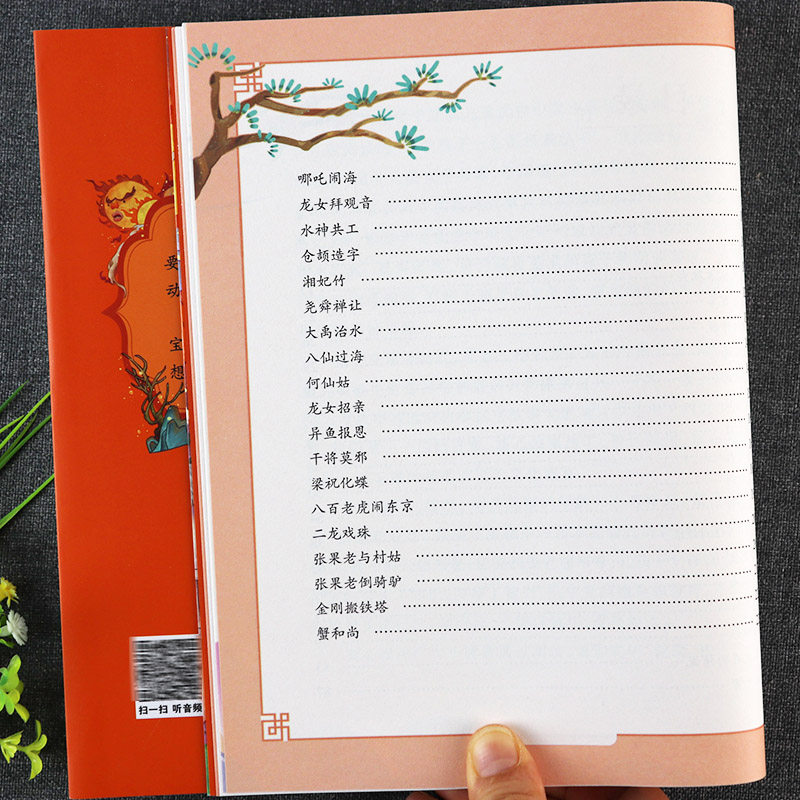 哪吒闹海
龙女拜观音
水神共工
仓颉造字
湘妃竹
尧舜禅让
大禹治水
八仙过海
何仙姑
龙女招亲
异鱼报恩
干将莫邪
梁祝化蝶
八百老虎闹东京
二龙戏珠
张果老与村姑
张果老倒骑驴
金刚搬铁塔
蟹和尚
要
动
宝
想
扫一扫 听音频